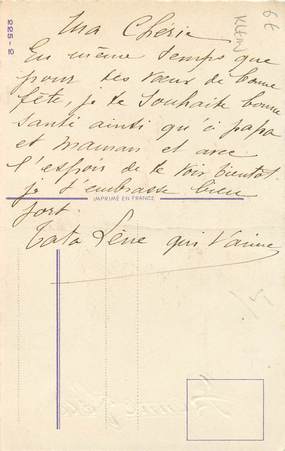 Ma Chérie
En même temps que
pour des vœux de bonne
fête, je te souhaite bonne
santé ainsi qu'à papa
et maman et avec
l'espoir de te voir bientôt
je t'embrasse bien
fort.
IMPRIMÉ EN FRANCE
Tata Lène qui t'aime
225-10
KLEIN
66